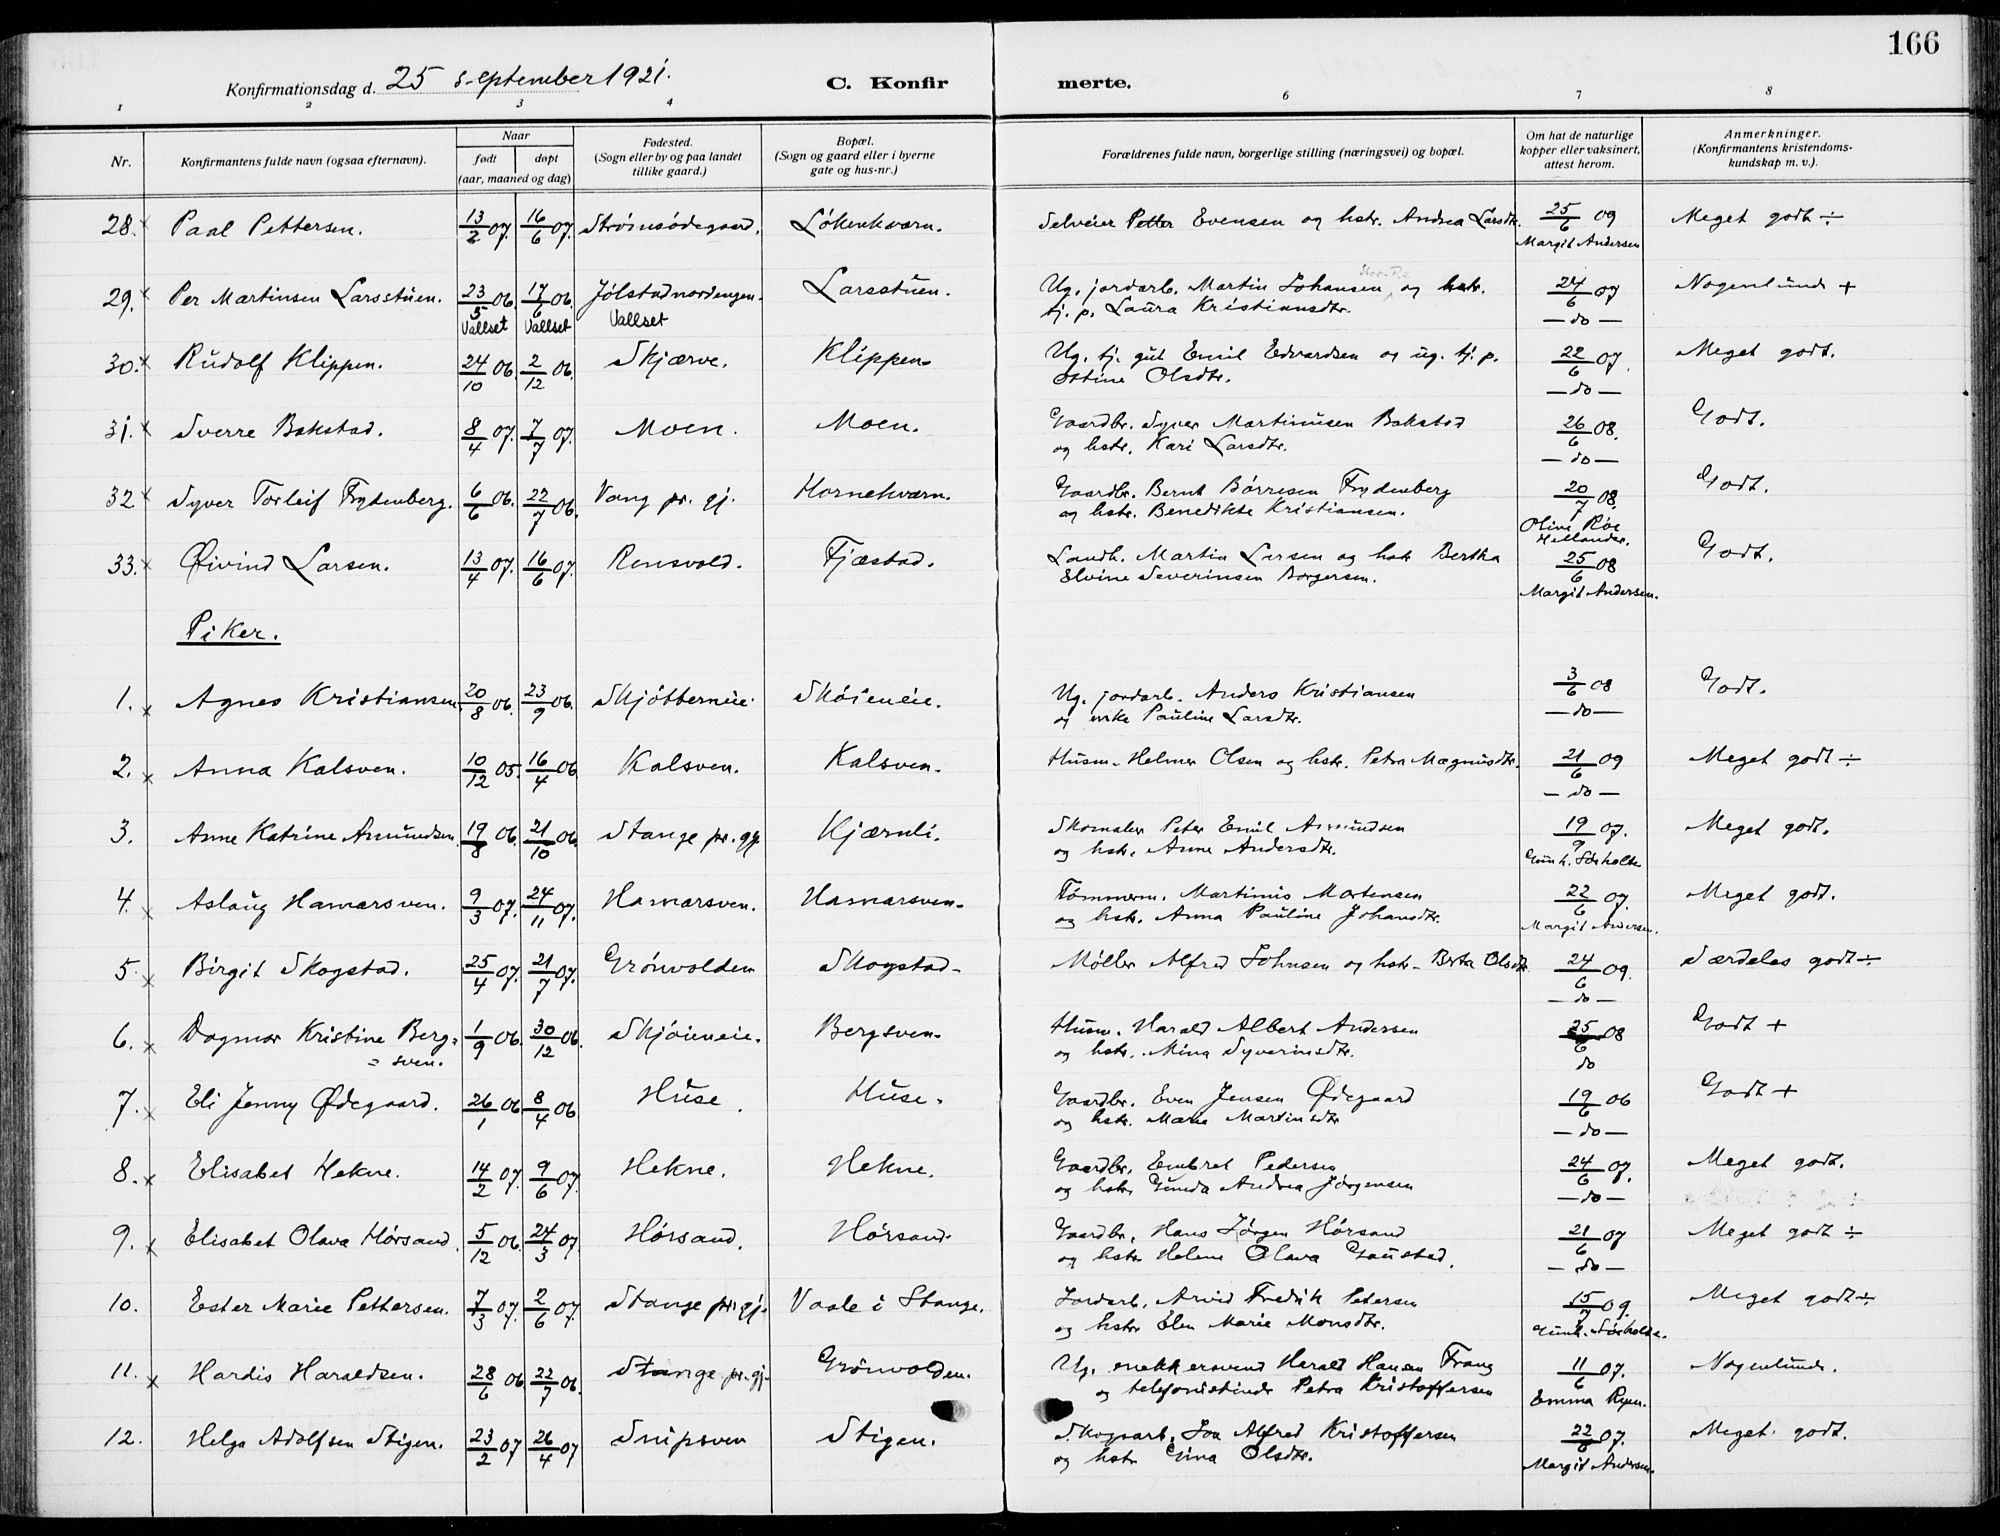 166
Konfirmationsdag d. 25 September 1921. C. Konfirmerte.
1 2 3 4 6 7 8
Nr. Konfirmantens fulde navn (ogsaa efternavn). Naar født døpt (aar, maaned og dag) Fødested. (Sogn eller by og paa landet tillike gaard.) Bopæl. (Sogn og gaard eller i byerne gate og hus-nr.) Forældrenes fulde navn, borgerlige stilling (næringsvei) og bopæl. Om hat de naturlige kopper eller vaksinert, attest herom. Anmerkninger. (Konfirmantens kristendoms-kundskap m. v.).
28. x Paal Pettersen. 13/2 07. 16/6 07. Strømsødegaard. Løkenkværn. Selveier Petter Evensen og hstr. Andrea Larsdtr. 25/6 09 Meget godt ÷
Margit Andersen
29. x Per Martinsen Larsstuen. 23/5 06. 17/6 06. Jølstadnordengen. Larsstuen. Ug. jordarb. Martin Johansen, og 24/6 07 Nogenlunde +
Vallset Vallset Vallset tj. p. Laura Kristiansdtr. — do —
30. x Rudolf Klippen. 24/10 06. 2/12 06. Skjærve. Klippen. Ug. tj. gut Emil Edvardsen og ug. tj. p. 22/6 07. Meget godt.
Ostine Olsdtr. — do —
31. x Sverre Bakstad. 8/4 07. 7/7 07. Moen. Moen. Gaardbr. Syver Martinusen Bakstad 26/6 08. Godt.
og hstr. Kari Larsdtr. — do —
32 x Syver Torleif Frydenberg. 6/6 06. 22/7 06. Vang pr. gj. Hornekværn. Gaardbr. Bernt Børresen Frydenberg 20/7 08. Godt.
og hstr. Benedikte Kristiansen. Olive Røe
33. x Øivind Larsen. 13/4 07. 16/6 07. Rensvold. Fjæstad. Landh. Martin Larsen og hstr Bertha 25/6 08 Godt.
Elvine Severinsen Borgersen. Margit Andersen.
Piker.
1. x Agnes Kristiansen. 20/8 06. 23/9 06. Skjøtterneie. Skøieneie. Ug. jordarb. Anders Kristiansen 3/6 08 Godt.
og enke Pauline Larsdtr. — do —
2. x Anna Kalsven. 10/12 05. 16/4 06 Kalsven. Kalsven. Husm. Helmer Olsen og hstr. Petra Magnusdtr. 21/6 09 Meget godt ÷
— do —
3. Anne Katrine Amundsen 19/8 06. 21/10 06. Stange pr. gj. Kjærnli. Skomaker Peter Emil Amundsen 19/9 07. Meget godt.
og hstr. Anne Andersdtr. Gunh. Sørholte
4. x Aslaug Hamarsven. 9/3 07. 24/11 07. Hamarsven. Hamarsven. Tømmerm. Martinus Mortensen 22/6 07. Meget godt.
og hstr. Anna Pauline Johansdtr. Margit Andersen.
5. x Birgit Skogstad. 25/4 07. 21/7 07. Grønvolden Skogstad. Møller Alfred Johnsen og hstr. Berta Olsdtr 24/6 09. Særdeles godt ÷
— do —
6. x Dagmar Kristine Berg= 1/9 06. 30/12 06. Skjøieneie. Bergsven. Husm. Harald Albert Andersen 25/6 08 Godt +
= sven. og hstr. Mina Syverinsdtr. do
7. x Eli Jenny Ødegaard. 26/1 06 8/4 06 Huse. Huse. Gaardbr. Even Jensen Ødegaard 19/6 06 Godt +
og hstr. Marie Martinsdtr — do —
8. x Elisabet Hekne. 14/2 07. 9/6 07. Hekne. Hekne. Gaardbr. Embret Pedersen 24/6 07. Meget godt.
og hstr Gunda Andrea Jørgensen — do —
9. x Elisabet Olava Hørsand. 5/12 06. 24/3 07. Hørsand. Hørsand. Gaardbr. Hans Jørgen Hørsand 21/6 07 Meget godt ÷
og hstr Helene Olava Gaustad. — do —
10. Ester Marie Pettersen. 7/3 07. 2/6 07. Stange pr. gj. Vaale i Stange. Jordarb. Arvid Fredik Petersen 15/7 09. Meget godt ÷
og hstr Elen Marie Monsdtr. Gunh. Sørholte.
11. x Hardis Haraldsen. 28/6 06. 22/7 06. Stange pr. gj. Grønvolden. Ug. snekkersvend Harald Hansen Frang 11/6 07. Nogenlunde.
og telefonistinde Petra Kristoffersen Emma Ryen.
12. Helga Adolfsen Stigen. 23/2 07 26/4 07 Snipsven Stigen. Skogsarb. Alfred Kristoffersen 22/6 07. Meget godt.
og hstr Gina Olsdtr. Margit Andersen.